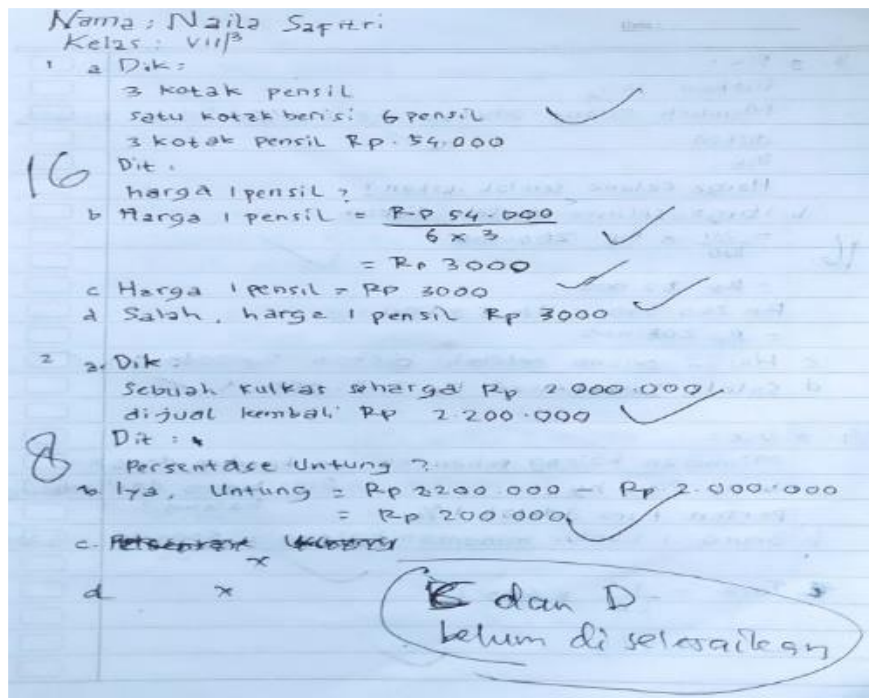 Nama : Naila Safitri
Kelas : VII/3
1 a Dik :
3 kotak pensil
satu kotak berisi 6 pensil
3 kotak pensil Rp. 54.000
16
Dit.
harga 1 pensil ?
b Harga 1 pensil = Rp 54.000
6 x 3
= Rp 3000
c Harga 1 pensil = Rp 3000
d Salah, harga 1 pensil Rp 3000
2 a. Dik :
Sebuah kulkas seharga Rp 2.000.000
dijual kembali Rp 2.200.000
8
Dit :
Persentase Untung ?
b Iya, Untung = Rp 2200.000 - Rp. 2.000.000
= Rp 200.000
c.
x
d x
dan D
belum di selesaikan